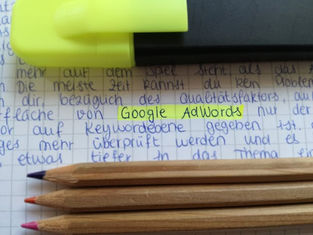 mehr auf dem Spiel steht als das
Die meiste Zeit kannst du den
dir, bezüglich des Qualitätsfaktors, au
fläche von Google AdWords nur der
or auf Keywordebene gegeben ist.
ges mehr überprüft werden und es
etwas tiefer in das Thema ein